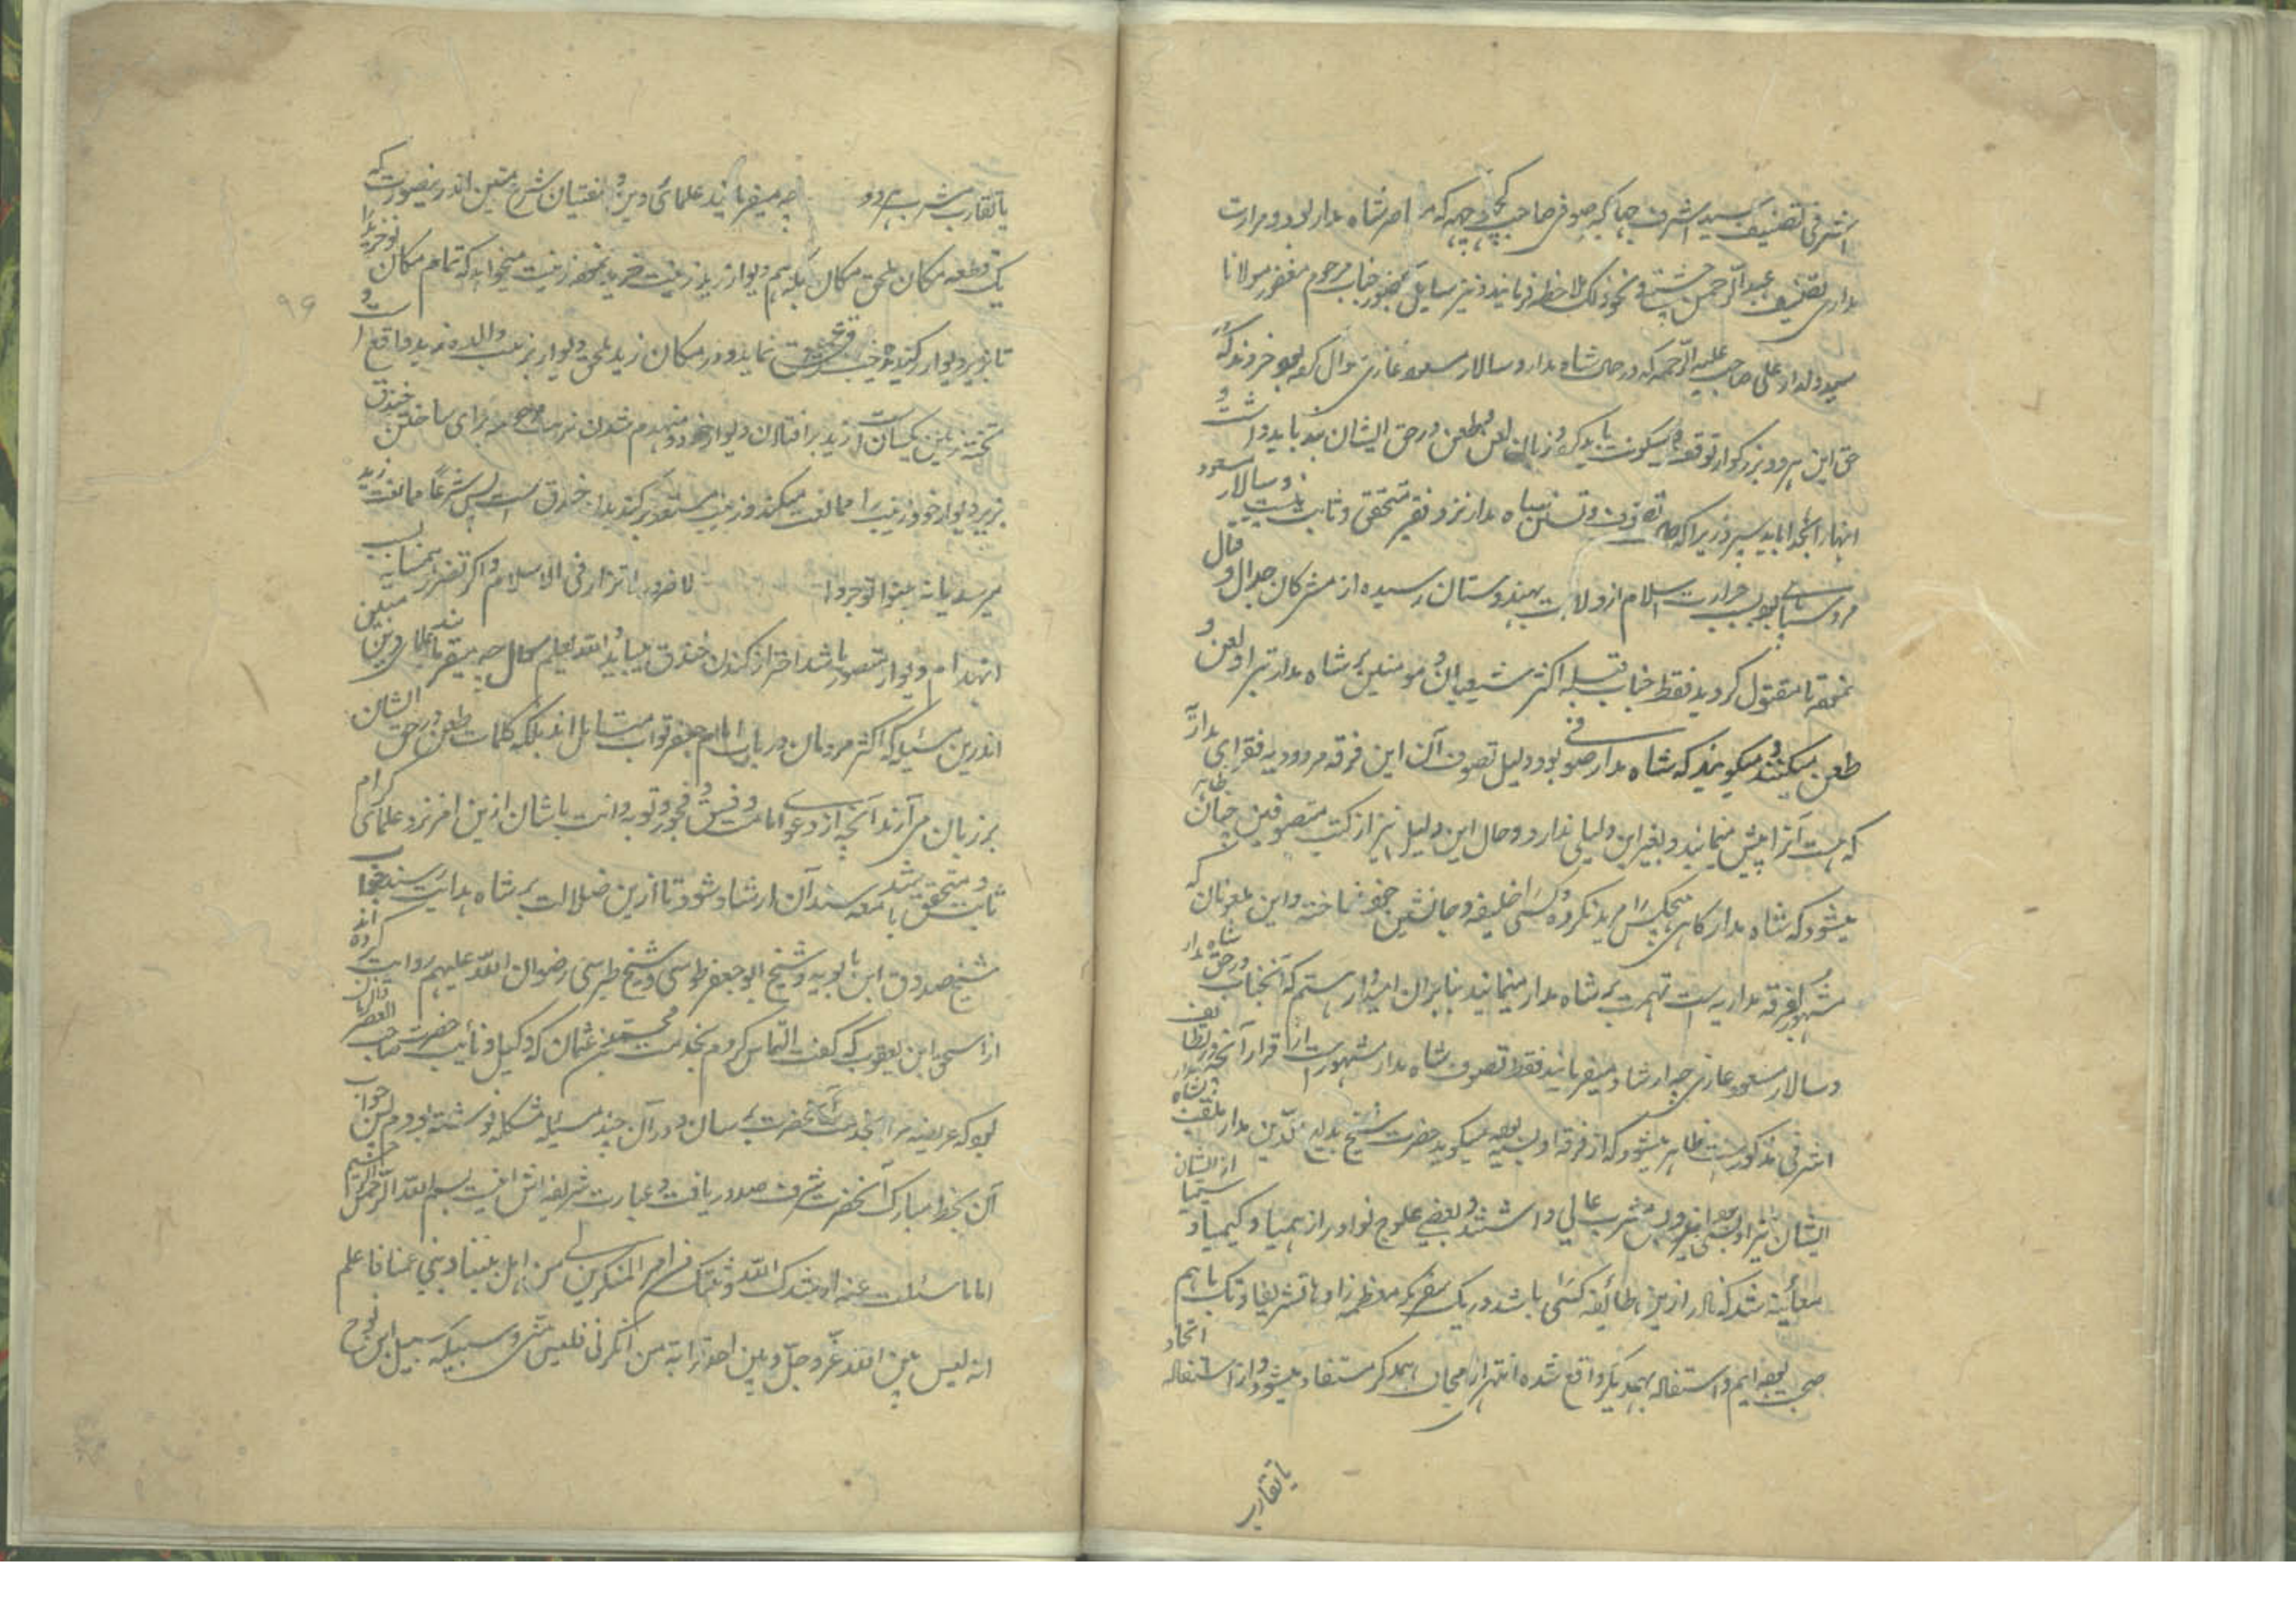 اشرفی تصنیف سید اشرف جهانگیر صوفی صاحب که امر شاه مدار بود و مرارت
مداری تصنیف عبد الرحمن چشتی و نحو ذلک ملاحظه فرمایند و نیز سایلی بحضور جناب مرحوم مغفور مولانا
سید دلدار علی صاحب علیه الرحمه که در حال شاه مدار و سالار مسعود غازی سوال کرده بود فرمودند که در
حق این هر دو بزرگوار توقف و سکوت باید کرد و زبان لعن و طعن در حق ایشان نباید داشت و
اینها را بخدا باید سپرد زیرا که تصوف و تسنن شاه مدار نزد فقیر متحقق و ثابت نیست و سالار مسعود
مرد سپاهی بود بسبب حرارت اسلام از ولایت بهندوستان رسیده از مشرکان جدال و قتال
نموده تا مقتول گردید فقط جناب قبله اکثر شیعیان و مومنین بر شاه مدار تبرا و لعن و
طعن میکنند و میگویند که شاه مدار صوفی بود و دلیل تصوف آن این فرقه مردودیه فقرای مداری
که هست آنرا پیش مینمایند و بغیر این دلیلی ندارد و حال این دلیل نیز از کتب متصوفین چنان ظاهر
میشود که شاه مدار گاهی هیچکس را مرید نکرده و کسی را خلیفه و جانشین خود نساخته و این ملعونان که
مشهور بفرقه مداریه است تهمت بر شاه مدار مینمایند بنابران امیدوار هستم که آنجناب در حق شاه مدار
و سالار مسعود غازی چه ارشاد میفرمایند فقط تصوف شاه مدار مشهور است از قرار آنچه در لطایف
اشرفی مذکور است ظاهر میشود که از فرقه اویسیه بوده میگوید حضرت شیخ بدیع الدین مدار ملقب بشاه مدار
ایشان نیز اویسی بوده اند و مشرب عالی داشتند و بعضی علوم نوادر از هیمیا و کیمیا و سیمیا از ایشان
معائنه شد که نادر ازین طائفه کسی را باشد در یک سفر مکه معظمه زاد ها تشریفا و تکریما باهم
صحبت بوده ایم و استفاده بهمدیگر واقع شده انتهی از همدگر مستفاد میشود و از استفاده اتحاد
یا تقارب
یا تقارب مشرب هر دو چه میفرمایند علمای دین و مفتیان شرع متین اندرینصورت که
یک قطعه مکان ملحق مکان بکه هم دیوار زید زینت خرید نموده زینت میخواهد که تمام مکان نوخرید را
تا زیر دیوار کنیده خندق نماید و در مکان زید ملحق دیوار زینت والده زید واقع است و
تخته زمین یکسان است زید بر افتادن دیوار خود و منهدم شدن تربت مرحومه برای ساختن خندق
بزیر دیوار خود زینت را ممانعت میکند و زینب مستعد بر کندیدن خندق است پس شرعاً ممانعت زید
میرسد یا نه بینوا توجروا لا ضرر و لا ضرار فی الاسلام و اگر تضرر همسایه بسبب
انهدام دیوار متصور باشد احتراز کندن خندق میباید والله یعلم سوال چه میفرمایند علمای دین مبین
اندرین مسئله که اکثر مردمان در باب امام جعفر تواب متسائل اند بلکه کلمات طعن در حق ایشان
بر زبان می آرند آنچه از دعوای امامت و فسق و فجور و توبه و انابت باشان ازین امر نزد علمای کرام
ثابت و متحقق شده باشد معه سند آن ارشاد شود تا ازین ضلالت بر شاه هدایت رسند جواب
شیخ صدوق ابن بابویه و شیخ ابو جعفر طوسی و شیخ طبرسی رضوان الله علیهم روایت کرده اند
از اسحق ابن یعقوب که گفت التماس کردم بخدمت محمد بن عثمان که وکیل و نائب حضرت صاحب العصر والزمان
بود که عریضه مرا بخدمت آنحضرت برسان و در آن چند مسئله مشکله نوشته بودم پس جواب
آن بخط مبارک آنحضرت شرف صدور یافت و عبارت شریفه اش اینست بسم الله الرحمن الرحیم
اما ما سئلت عنه ارشدک الله و ثبتک من امر المنکرین لی من اهل بیتنا و بنی عمنا فاعلم
انه لیس بین الله عزّ و جلّ و بین احد قرابة من انکرنی فلیس منّی و سبیله سبیل ابن نوح